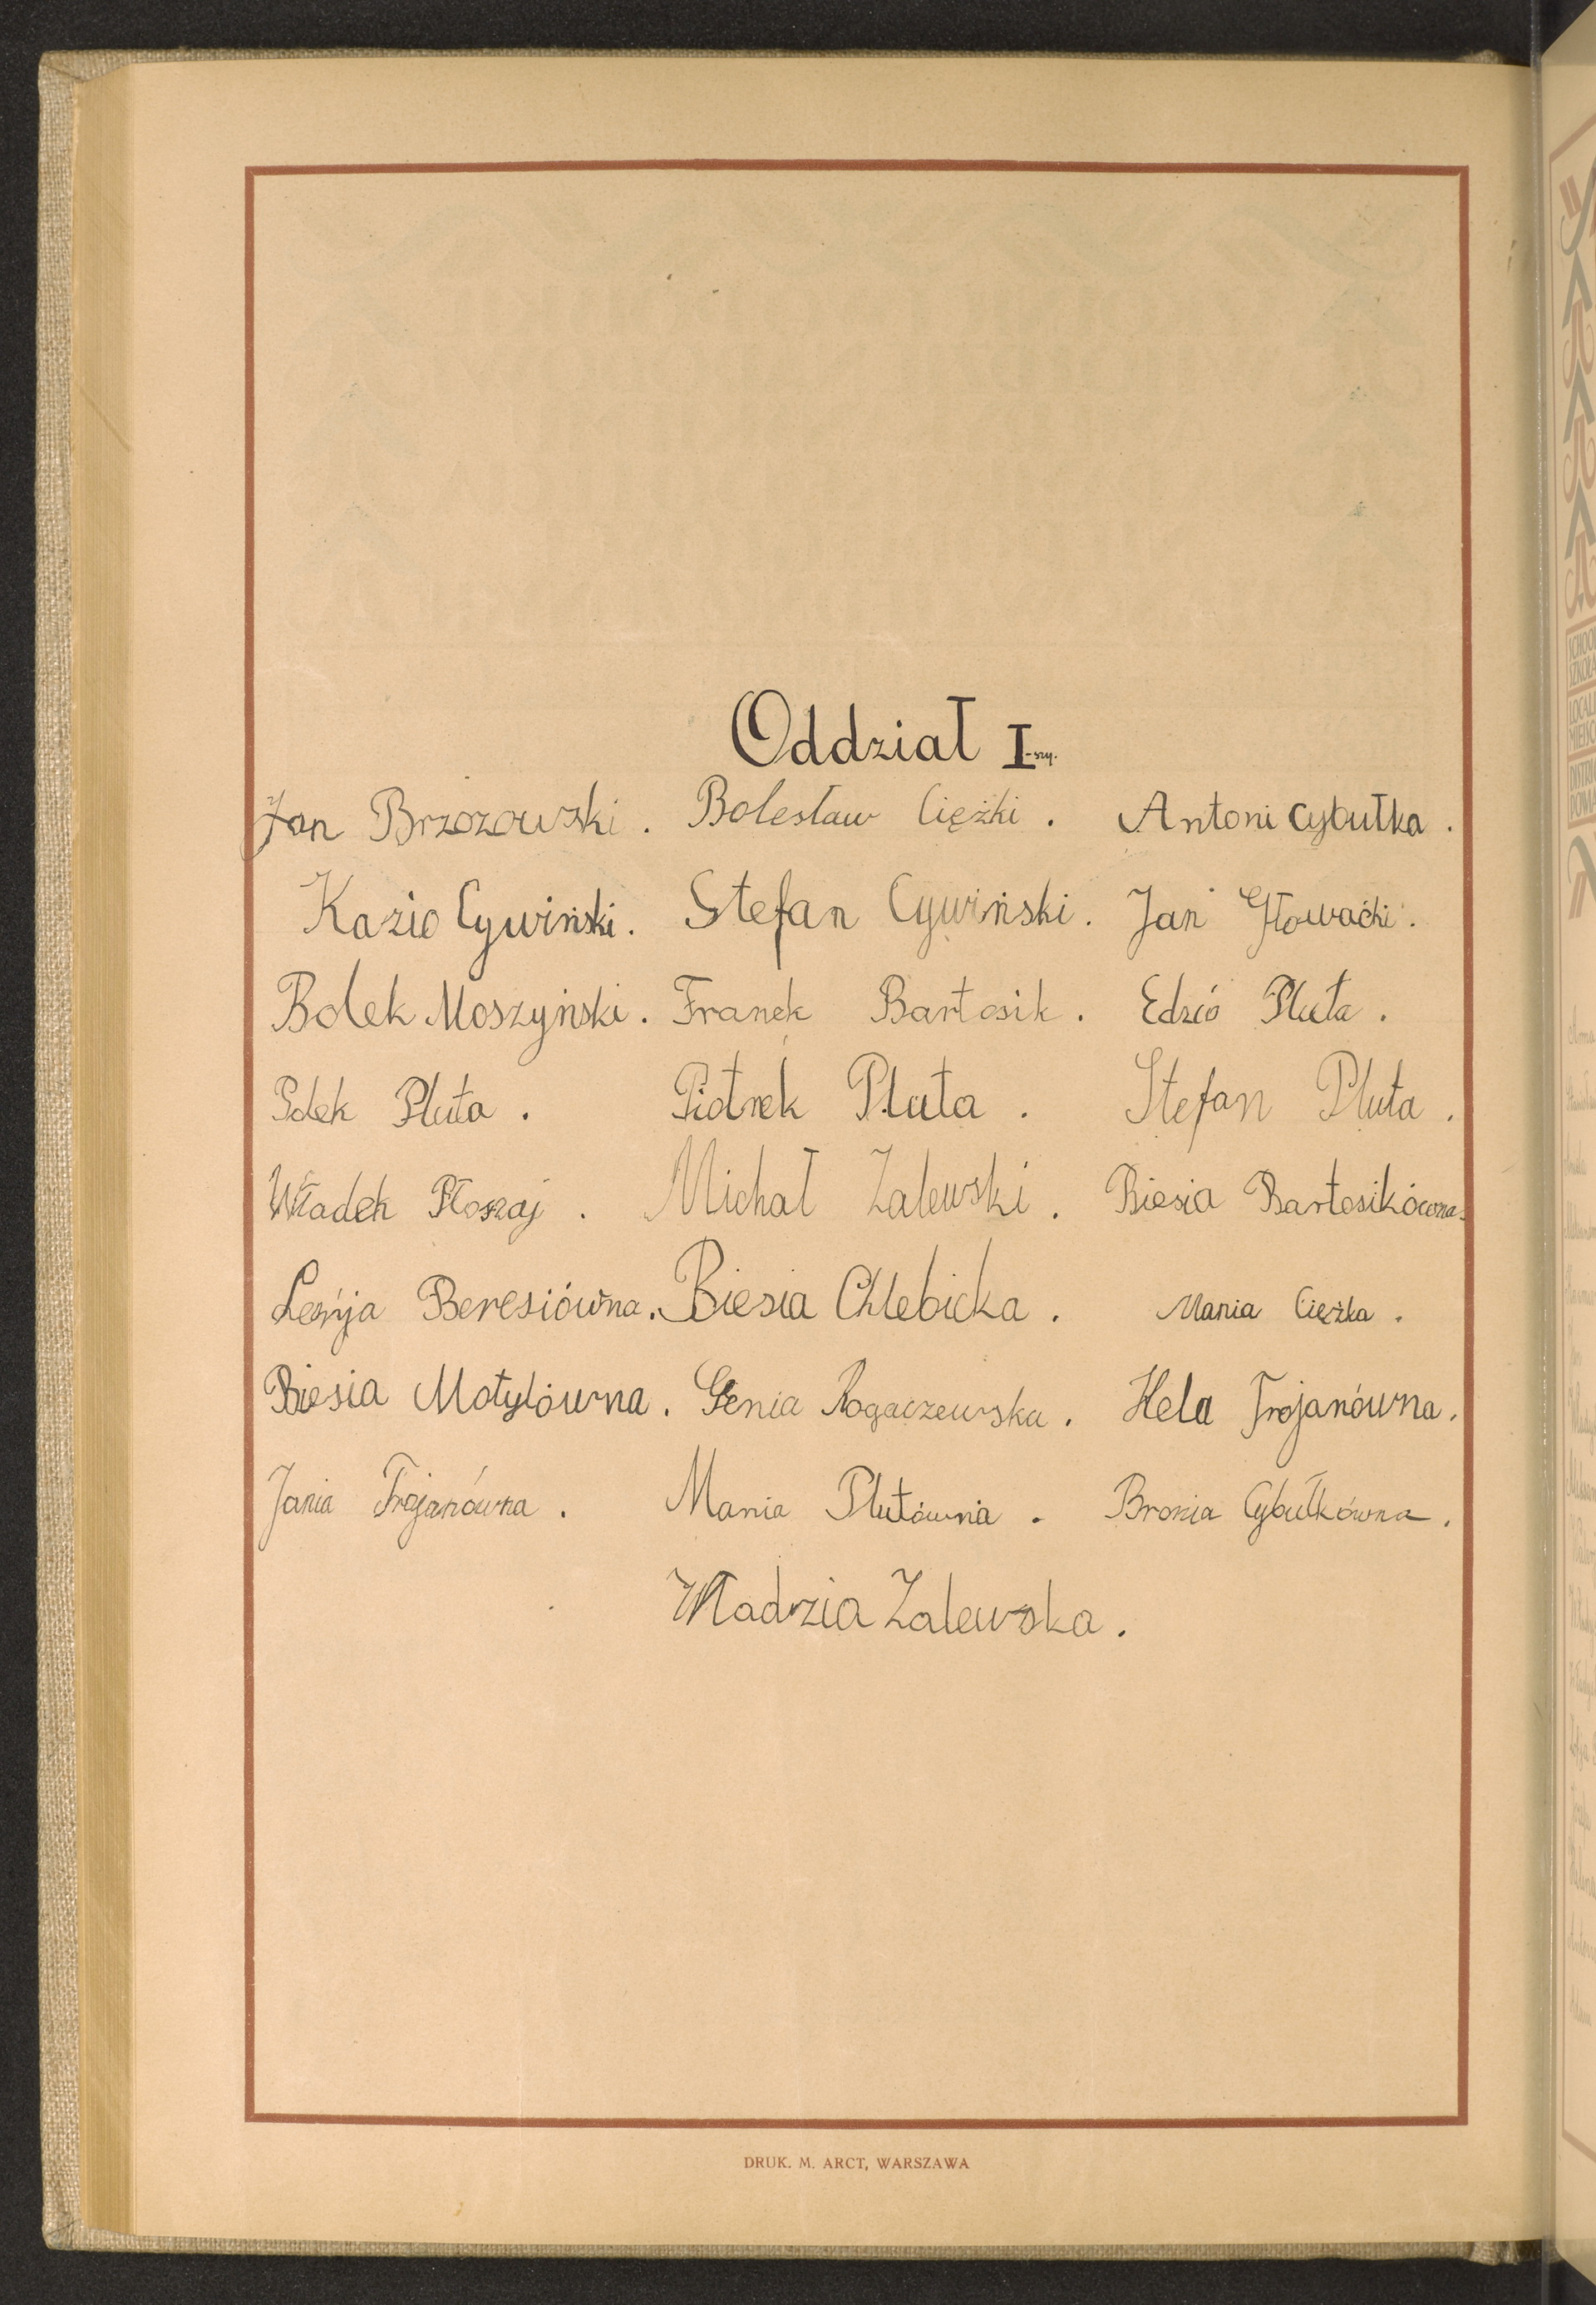 Oddział I-szy.
Jan Brzozowski. Bolesław Ciężki. Antoni Cybułka.
Kazio Cywiński. Stefan Cywiński. Jan Głowacki.
Bolek Moszyński. Franek Bartosik. Edzio Pluta.
Polek Pluta. Piotrek Pluta. Stefan Pluta.
Władek Płoszaj. Michał Zalewski. Biesia Bartosikówna.
Beresiówna. Biesia Chlebicka. Mania Ciężka.
Biesia Motylówna. Genia Rogaczewska. Hela Trojanówna.
Jania Trojanówna. Mania Plutówna. Bronia Cybułkówna.
Władzia Zalewska.
DRUK. M. ARCT, WARSZAWA